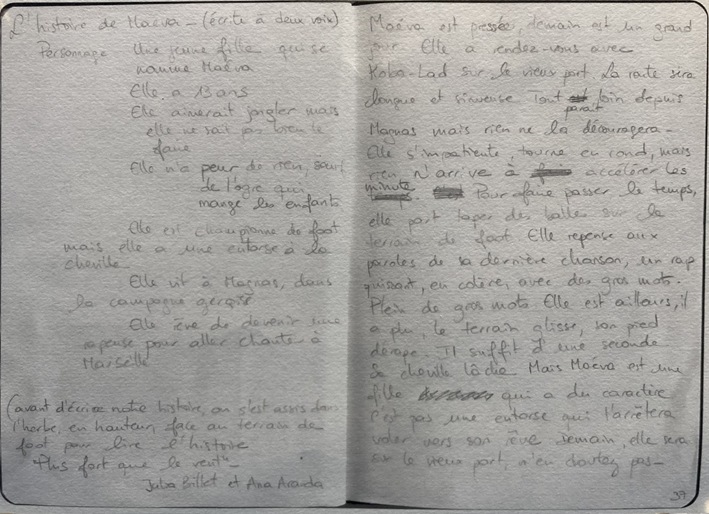 L'histoire de Maéva - (écrite à deux voix)
Personnage Une jeune fille qui se
nomme Maéva
Elle a 13 ans
Elle aimerait jongler mais
elle ne sait pas bien le
faire
Elle n'a peur de rien, sauf
de l'ogre qui
mange les enfants
Elle est championne de foot
mais elle a une entorse à la
cheville
Elle vit à Magnas, dans
la campagne gersoise
Elle rêve de devenir une
rapeuse pour aller chanter à
Marseille
(avant d'écrire notre histoire, on s'est assis dans
l'herbe, en hauteur, face au terrain de
foot pour lire l'histoire
"Plus fort que le vent"-
Billet et Ana Aranda
Maéva est pressée, demain est un grand
jour. Elle a rendez-vous avec
Koba-Lad sur le vieux port. La route sera
longue et sinueuse Tout paraît loin depuis
Magnas mais rien ne la découragera -
Elle s'impatiente, tourne en rond, mais
rien n'arrive à accélérer les
minute Pour faire passer le temps,
elle part taper des balles sur le
terrain de foot. Elle repense aux
paroles de sa dernière chanson, un rap
puissant, en colère, avec des gros mots.
Plein de gros mots. Elle est ailleurs, il
a plu, le terrain glisse, son pied
dérape. Il suffit d'une seconde
Sa cheville lâche Mais Maéva est une
fille qui a du caractère
C'est pas une entorse qui l'arrêtera
voler vers son rêve demain, elle sera
sur le vieux port, n'en doutez pas -